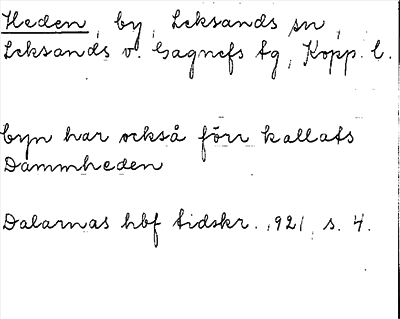 Heden, by, Leksands sn,
Leksands o. Gagnefs tg, Kopp. l.
byn har också förr kallats
Dammheden
Dalarnas hbf tidskr. 1921, s. 4.